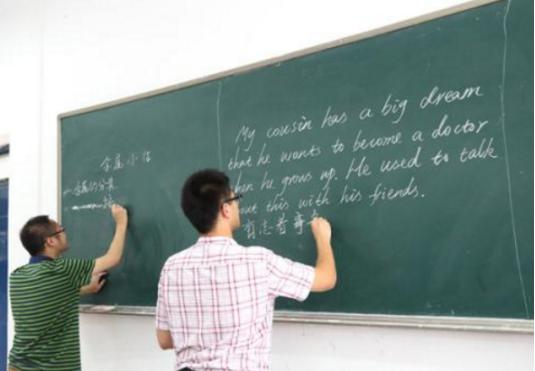 金属小结
金属的分类
My cousin has a big dream
that he wants to become a doctor
when he grows up. He used to talk
this with his friends.
有志者事